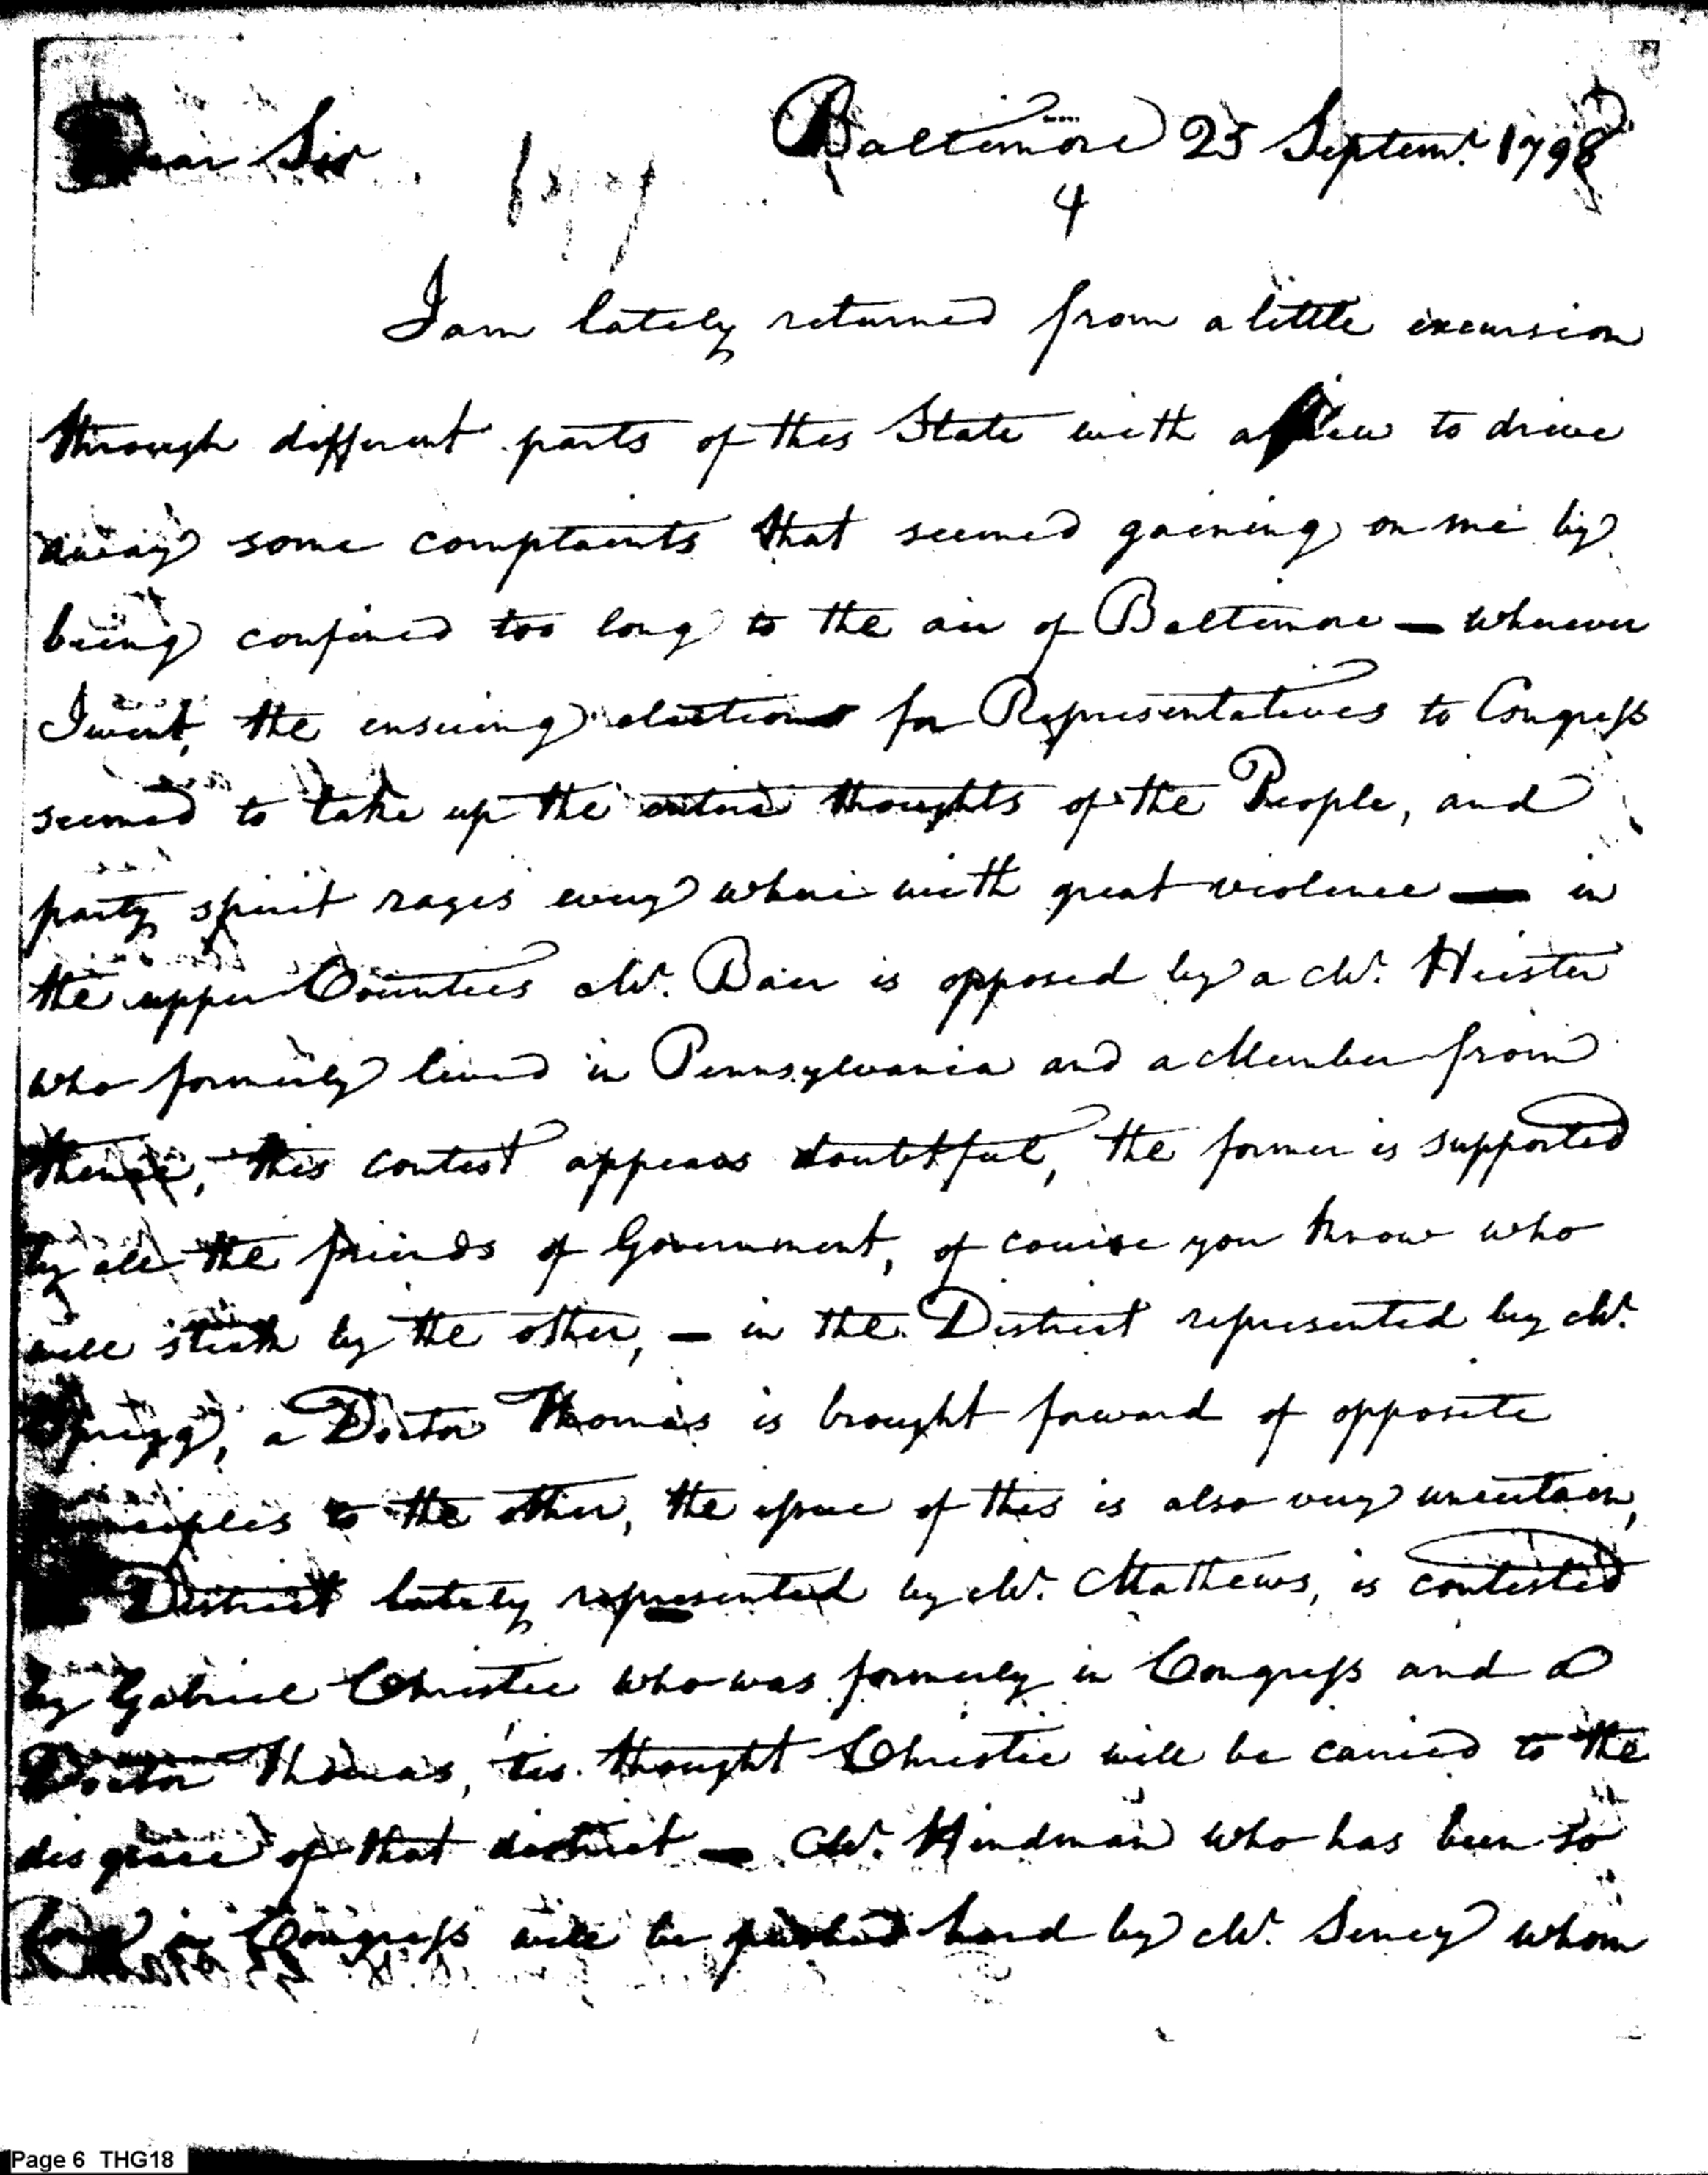 Dear Sir Baltimore 25 Septem.r 1798
4
I am lately returned from a little excursion
through different parts of this State with a view to drive
away some complaints that seemed gaining on me by
being confined too long to the air of Baltimore — wherever
I went, the ensuing elections for Representatives to Congress
seemed to take up the entire thoughts of the People, and
party spirit rages every where with great violence — in
the upper Counties Mr. Baer is opposed by a Mr. Heister
who formerly lived in Pennsylvania and a Member from
thence, this contest appears doubtful, the former is supported
by all the friends of Government, of course you know who
will stick by the other, — in the District represented by Mr.
Sprigg, a Doctor Thomas is brought forward of opposite
principles to the other, the issue of this is also very uncertain,
District lately represented by Mr. Mathews, is contested
by Gabriel Christie who was formerly in Congress and a
Doctor Thomas, tis thought Christie will be carried to the
disgrace of that district — Mr. Hindman who has been so
long in Congress will be pushed hard by Mr. Seney whom
Page 6 THG18